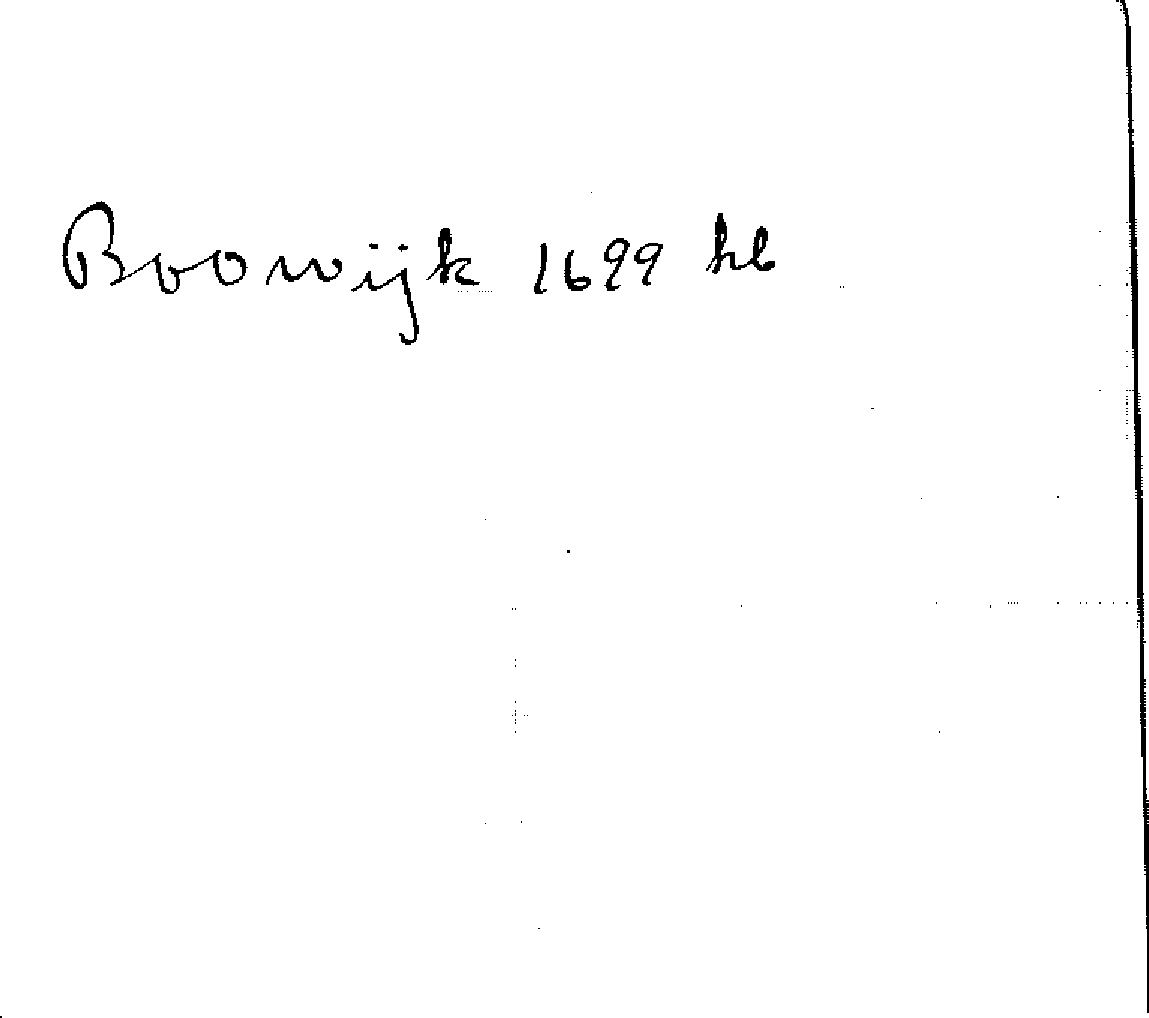 Boowijk 1699 hl